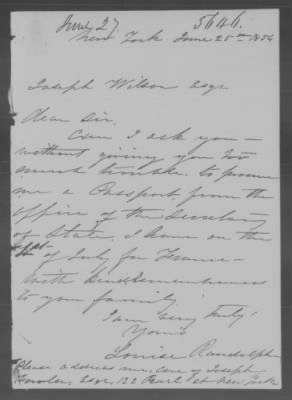 June 27. 5646.
New York June 25th 1854
Joseph Wilson Esqr
Dear Sir.
Can I ask you—
without giving you too
much trouble, to procure
me a Passport from the
office of the Secretary
of State, I leave on the
1st of July for France—
with kind remembrances
to your family.
I am very truly
Yours
Louise Randolph
Please address me, care of Joseph
Fowler, Esqr, 122 Pearl st New York